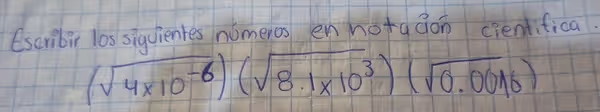 Escribir los siguientes números en notación cientifica.
(√4x10⁻⁶) (√8.1x10³) (√0.0016)